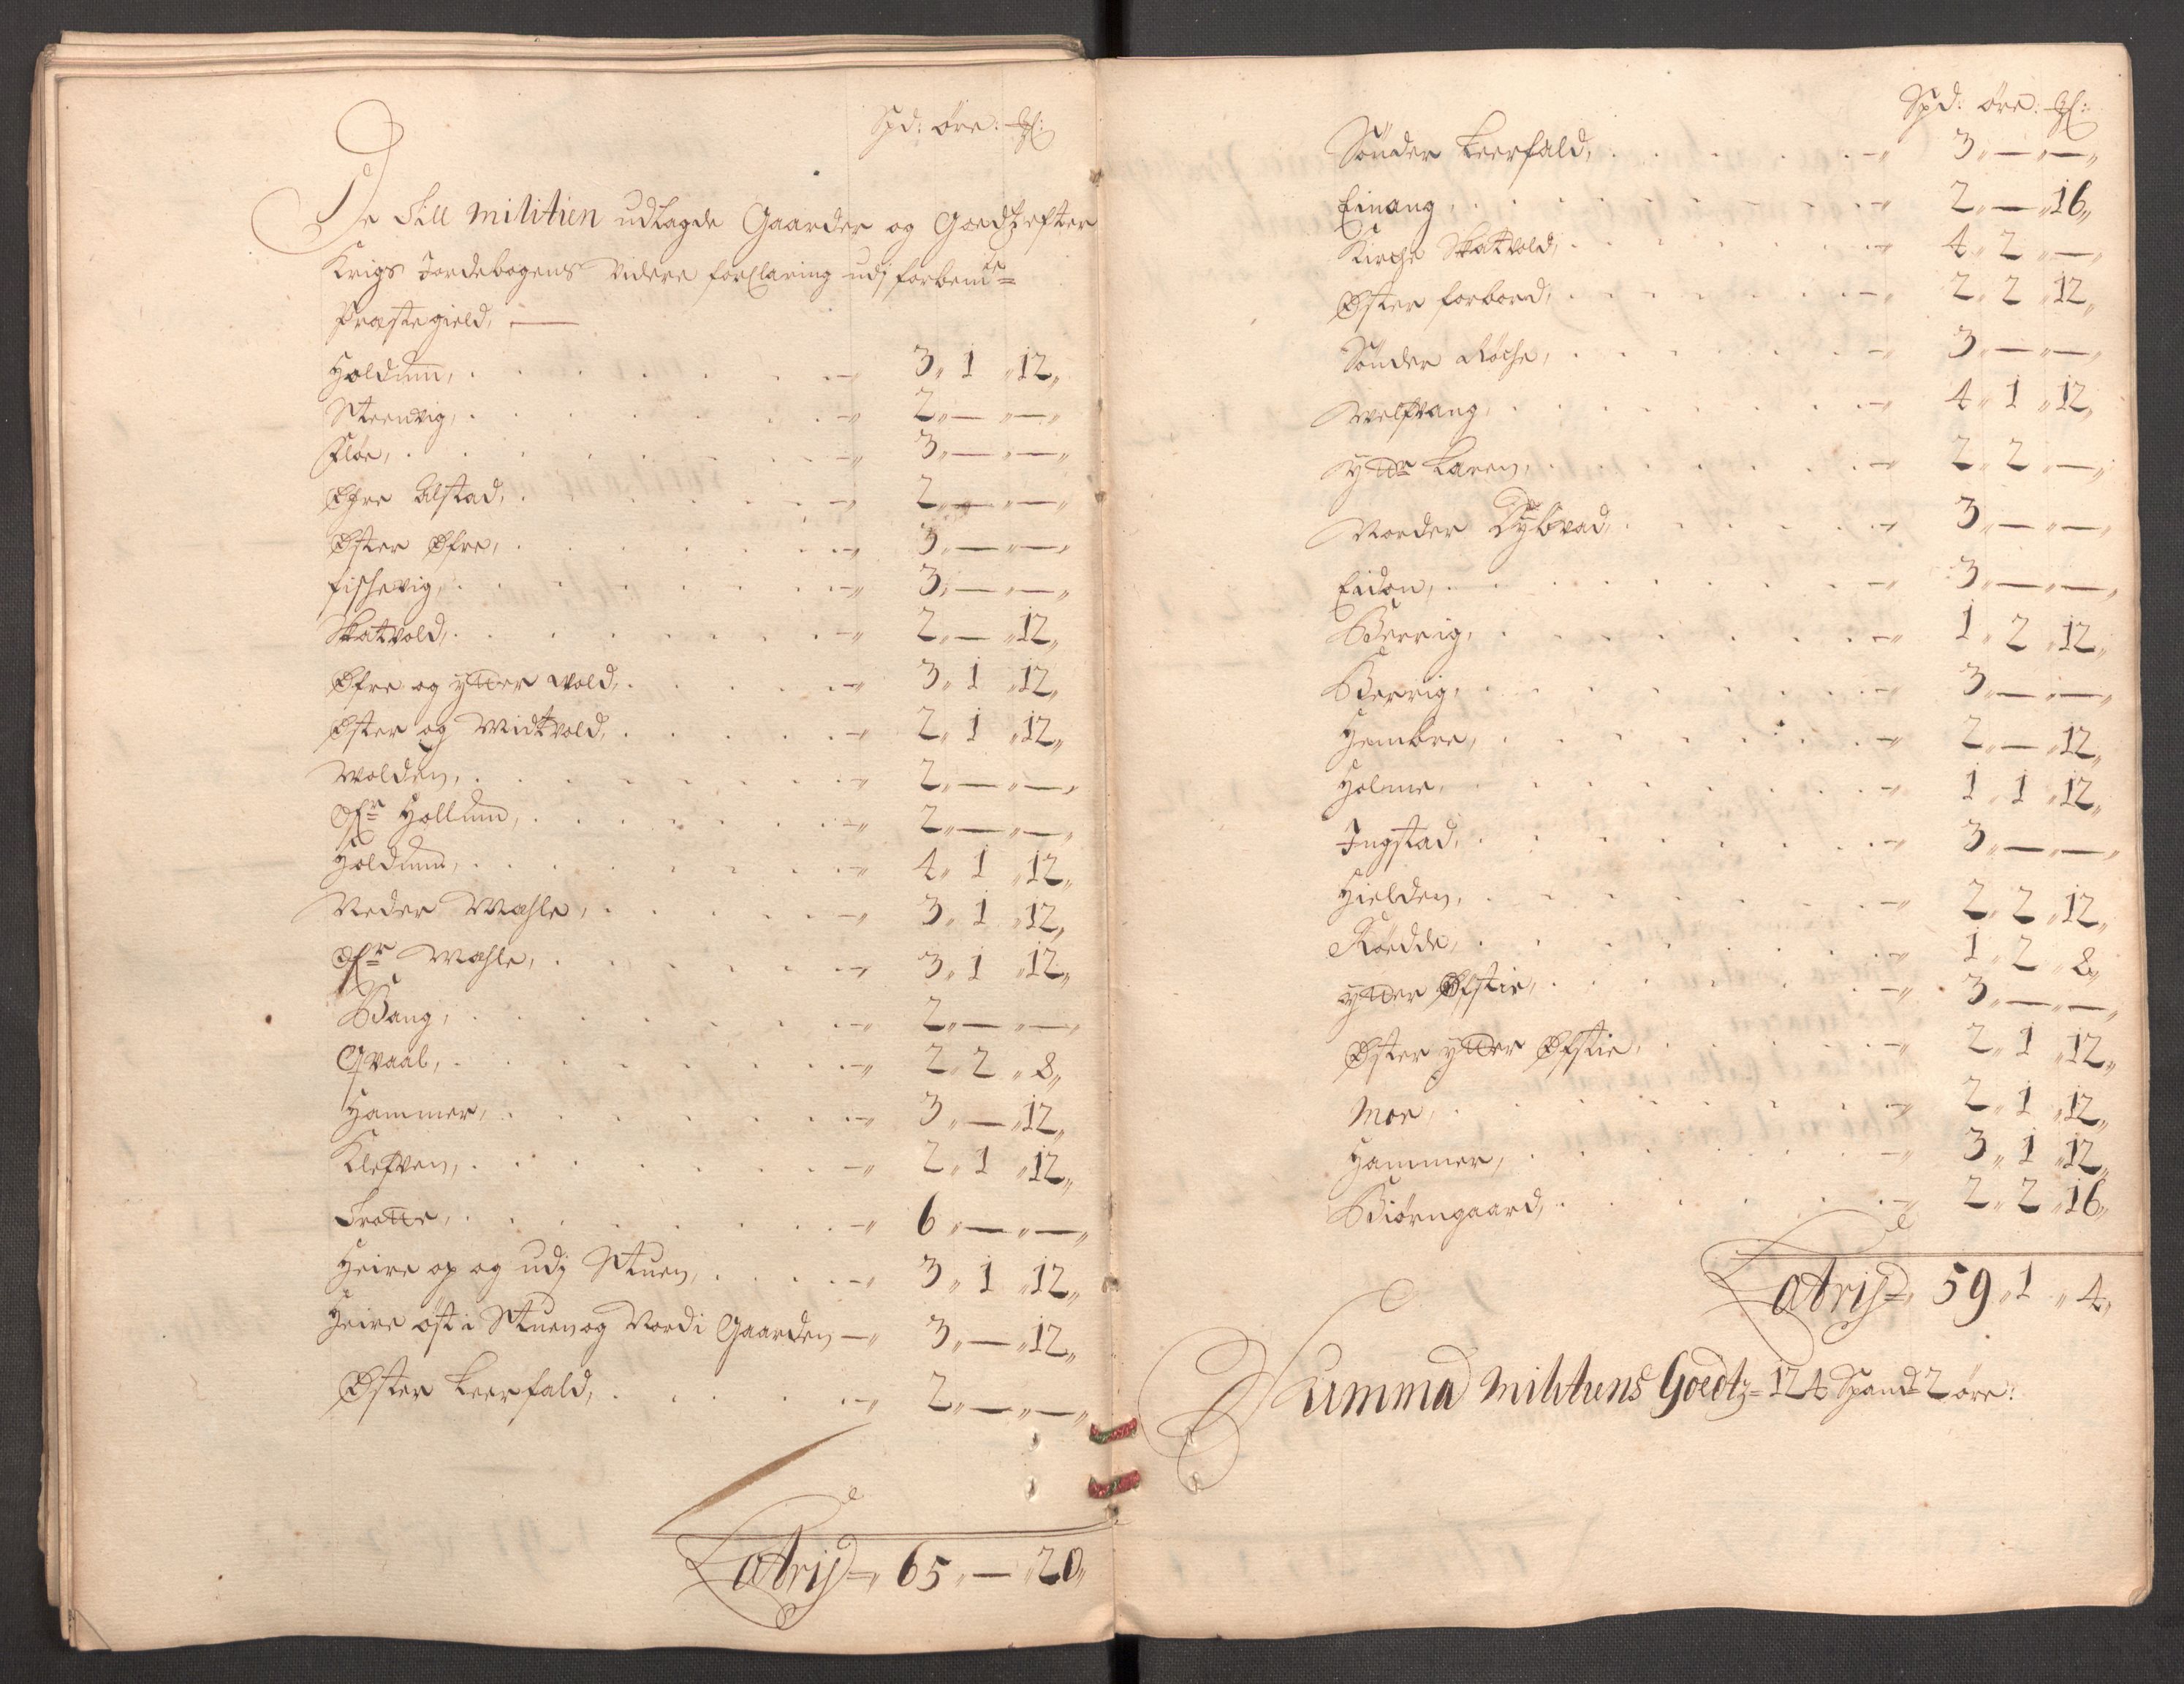 Spd: öre:
De till militien udlagde Gaarder og Goedtz efter
Krigs Jordebogens Videre forClaring udj forbemte
Præstegield,
Holdum, 3 1 12
Steenvig, 2 — —
Floe, 3 — —
Øfre Alstad, 2 — —
Øster Øfre, 3 — —
fischevig, 3 — —
Skatvold, 2 — 12
Øfre og ytter Wold, 3 1 12
Øster og Midtvold, 2 1 12
Wolden, 2 — —
Øfr Hollum, 2 — —
Holdum, 4 1 12
Neder Wahle, 3 1 12
Øfr Wahle, 3 1 12
Bang, 2 — —
Qvaal, 2 2 8
Hammer, 3 — 12
Klefven, 2 1 12
Trætte, 6 — —
Heire op og udj Stuen, 3 1 12
Heire öst i Stuen og Nordi Gaarden 3 — 12
Øster Leerfald, 2 — —
Latris 65 — 20
Spd: öre:
Sönder Leerfald, 3 — —
Einang, 2 — 16
Kirche Skatvold, 4 2 —
Øster forbord, 2 2 12
Sönder Röche, 3 — —
Welfvang, 4 1 12
Ytter Laren, 2 2 —
Norder Dybvad, 3 — —
Eidon, 3 — —
Berrig, 1 2 12
Berrig, 3 — —
Hembre, 2 — 12
Holme, 1 1 12
Ingstad, 3 — —
Hielden, 2 2 12
Rödde, 1 2 8
ytter Øfstie, 3 — —
Øster ytter Øfstie, 2 1 12
Moe, 2 1 12
Hammer, 3 1 12
Biörngaard, 2 2 16
Latris 59 1 4
Summa militiens Goedtz 124 Spand 2 öre: